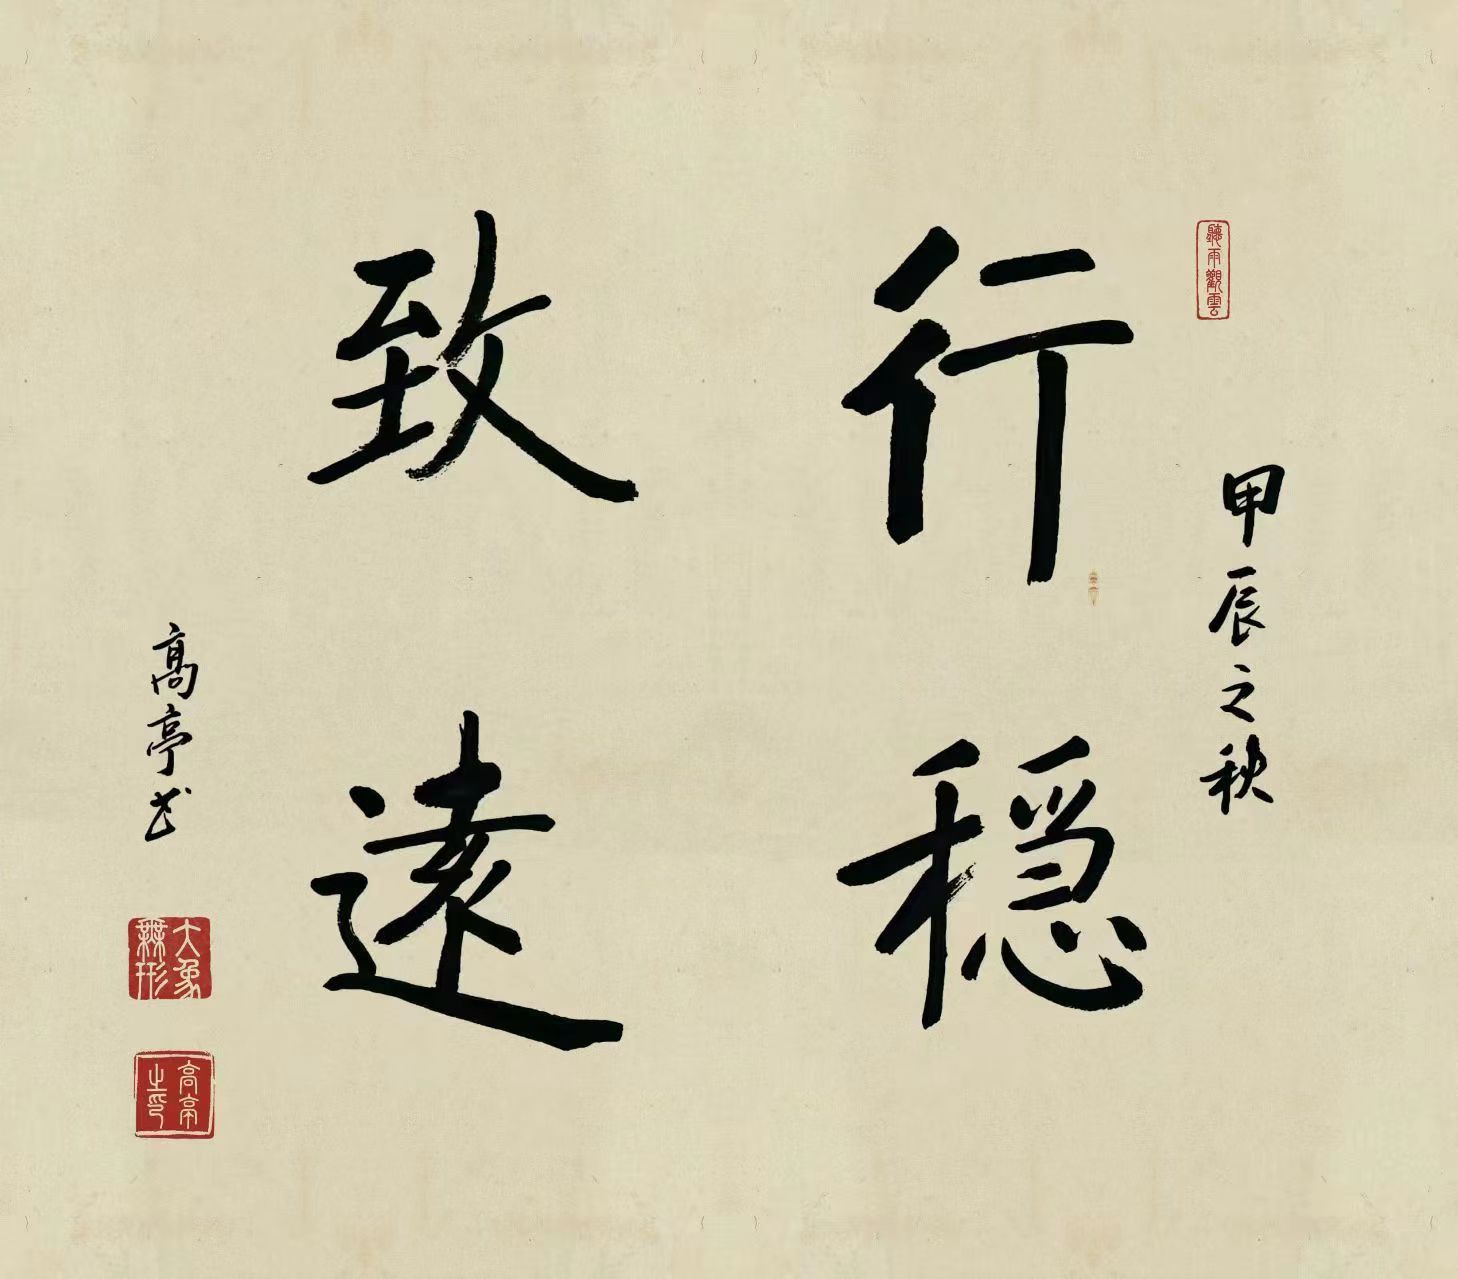 聽雨觀雲
甲辰之秋
行穩
致遠
高亭书
大象無形
高亭之印